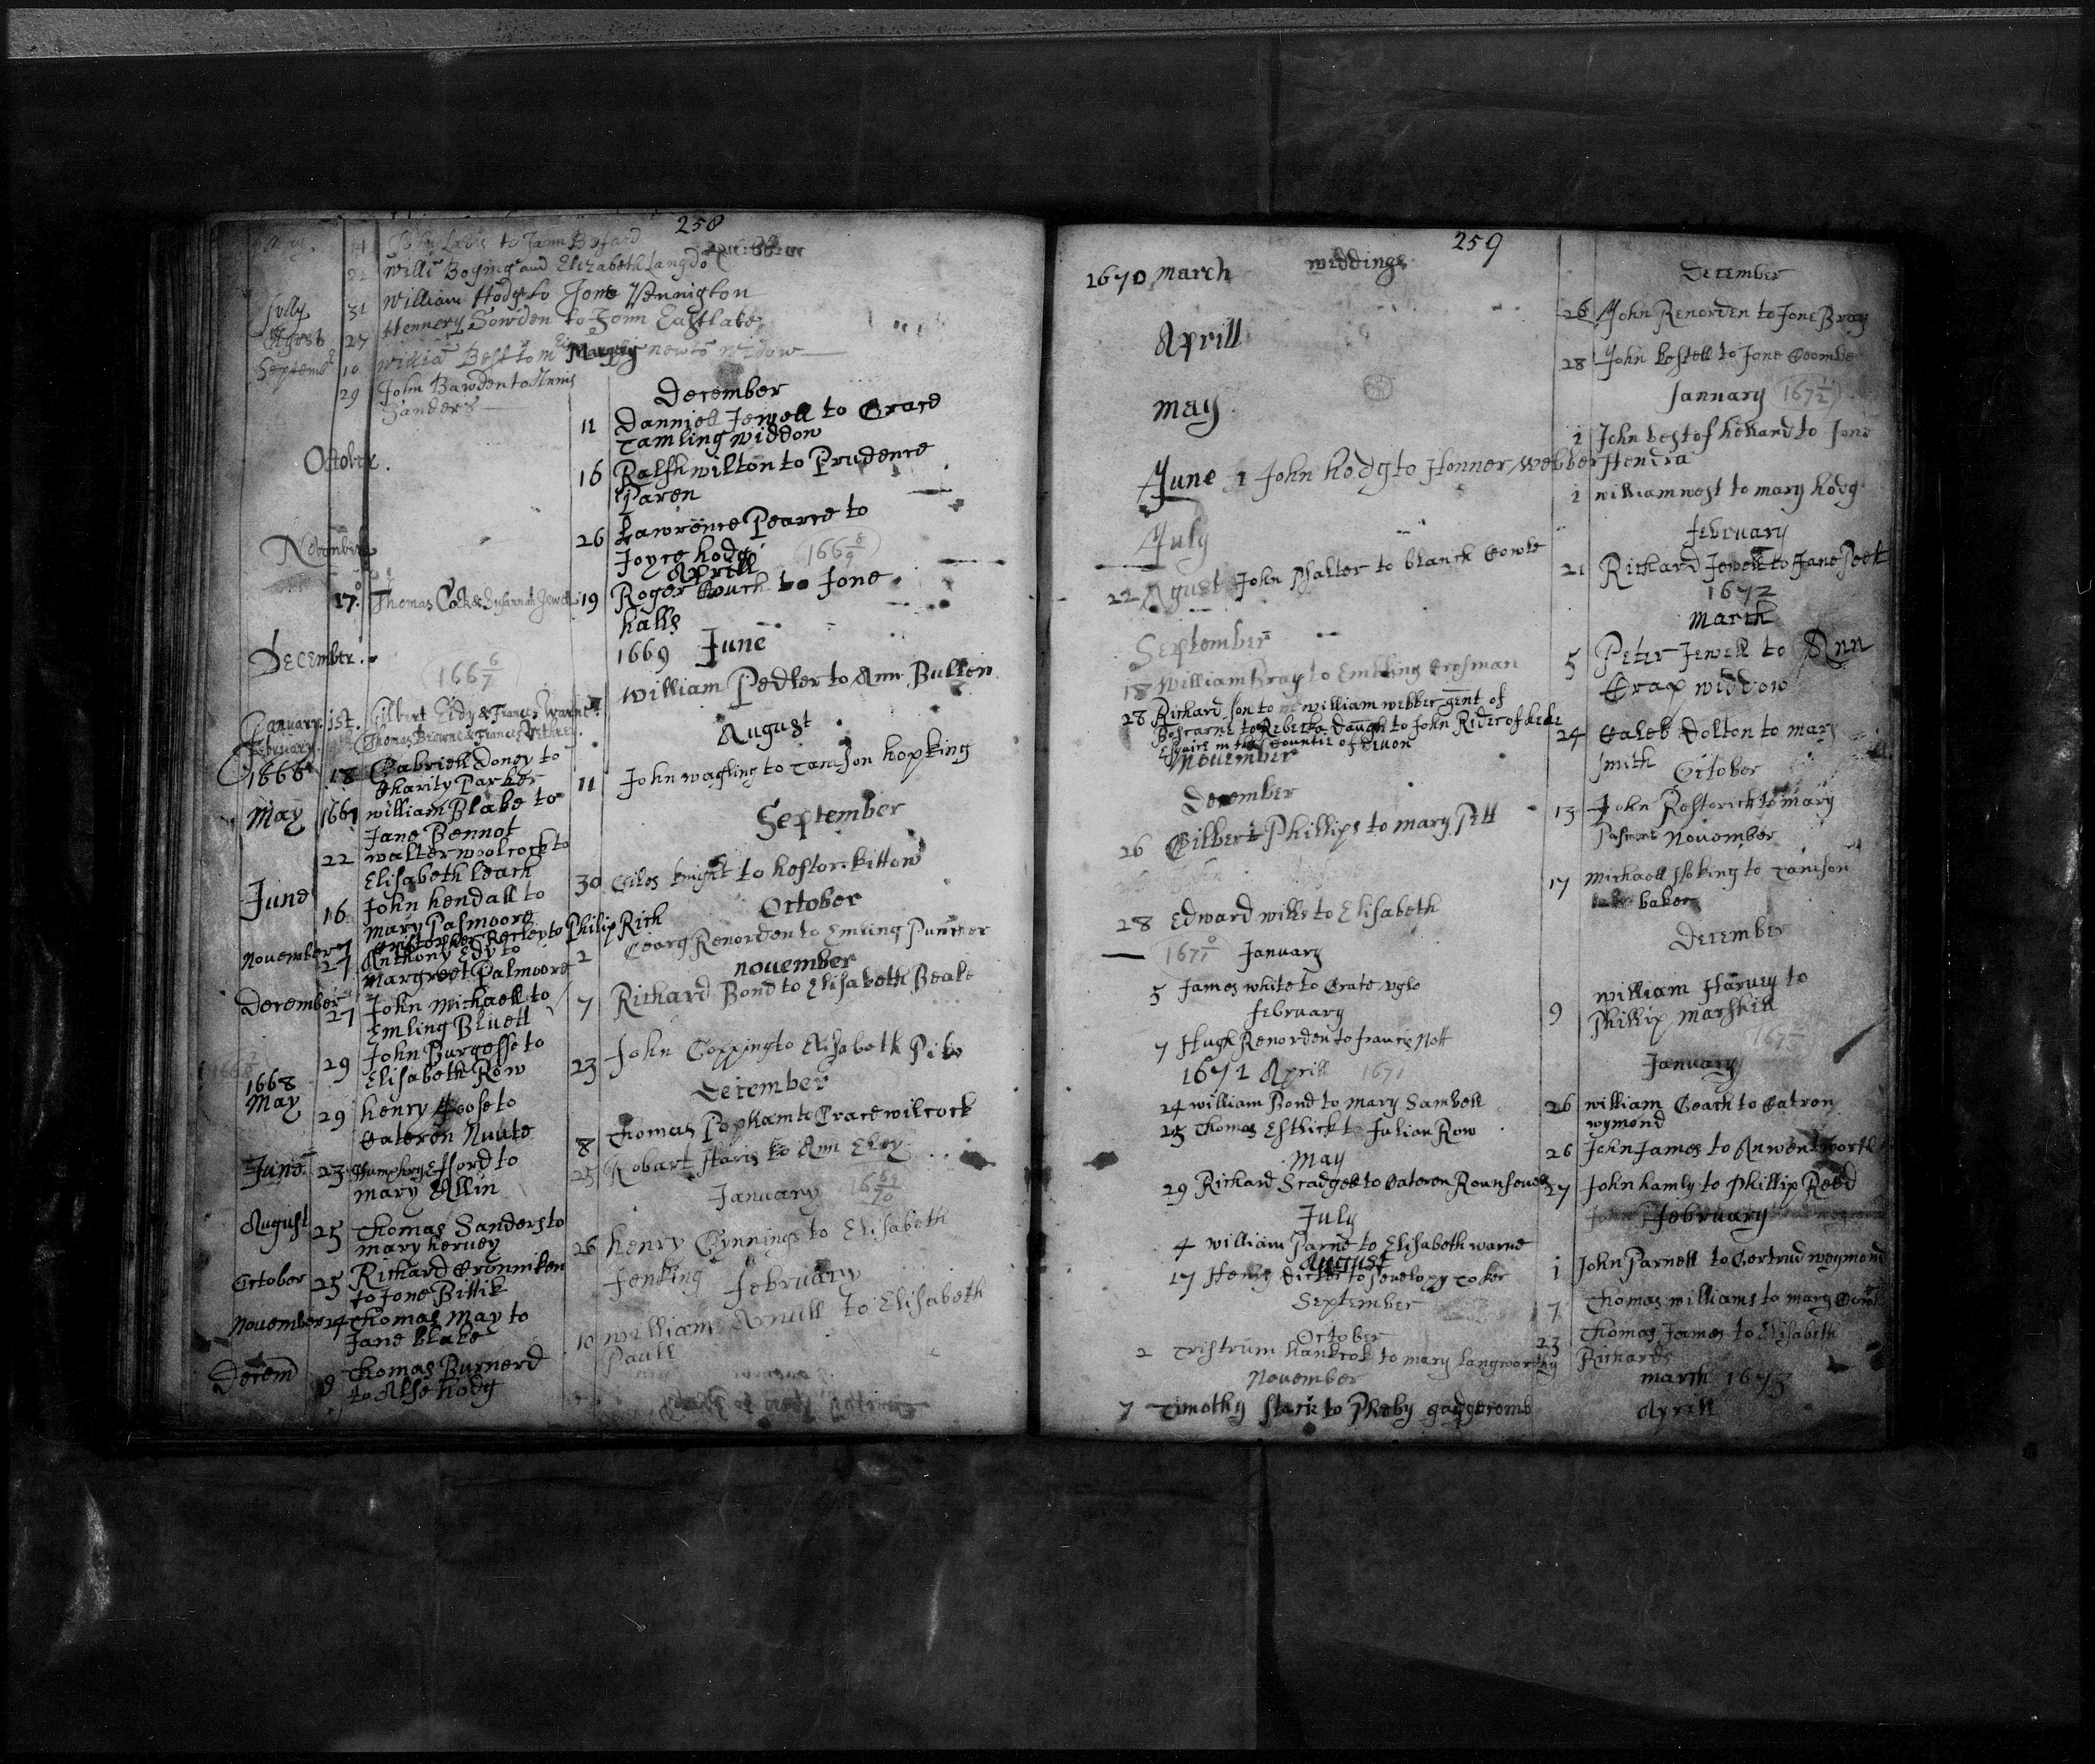 258
14 John to Jann
21 Willi Boging and Elizabeth Langdo
Jully 31 William Hodg to Jone Vennigton
Agost 27 Hennery Sowden to Jonn Eastlake
Septemb 10 Willia Best to newto widow
29 John Bawden to Annis
Sanders
October
Novembr
17 Thomas Cock & Susannah Jewell
December
166 6/7
January 1st. Gilbert Eidy & Frances Warne
February Thomas Browne & Frances
1666 18 Gabriell Doney to
Charity Parker
May 1667 william Blake to
Jane Bennot
22 walter woolcock to
Elisabeth leach
June 16 John kendall to
mary Palmoore
November 7 to Philip Rich
27 Anthony Edy to
Margreet Palmoore
December 27 John Michaell to
Emling Bluett
29 John Burgesse to
Elisabeth Row
1668
May 29 henry Goose to
Cateren Nuute
June 23 Humphry Efford to
mary Allin
August 25 Thomas Sanders to
mary hervey
October 25 Richard Cronniken
to Jone Bittik
November 24 Thomas May to
Jane blake
Decem 9 Thomas Burnerd
to Alse hodg
December
11 Danniell Jewell to Grace
Tamling widdow
16 Ralfh wilton to Prudence
Paren
26 Lawrence Pearce to
Joyce hodg
Aprill 166 8/9
19 Roger Couch to Jone
halls
1669 June
William Pedler to Ann Bullen
August
11 John wagling to Tamson hopking
September
30 Giles knight to hestor kittow
October
2 Georg Renorden to Emling Puncher
november
7 Richard Bond to Elisabeth Beale
23 John Copping to Elisabeth Pike
December
8 Thomas Popham to Grace wilcock
25 Robart Haris to Ann Elry
January 16 69/70
26 henry Gynnings to Elisabeth
Jenking
february
10 william Arnull to Elisabeth
Paull
259
1670 march weddings
Aprill
may
June 1 John hodg to Honner Webber
July
22 Agust John Psalter to blanch Cowle
September
18 William Bray to Embling Crosman
28 Richard son to william webber gent of
Boscarne to Rebecka Daugh to John Rider of
Esquire in the Countie of Devon
November
December
26 Gilbert Phillips to mary Pett
28 Edward wills to Elisabeth
167 0/1 January
5 James white to Grace uglo
february
7 Hugh Renorden to francis Nott
1671 Aprill 1671
24 william Bond to mary Sambell
25 Thomas Estlick to Julian Row
May
29 Richard Scadgell to Cateren Rounsevell
July
4 william Parne to Elisabeth warne
August
17 Henry Dicker to Penelopy Toker
September
October
2 Tristrum hancok to mary langworthy
November
7 Timothy Stark to Pheby gadgecomb
December
26 John Renorden to Jone Bray
28 John kestell to Jone Coombe
January 167 1/2
1 John best of helland to Jone
Hendra
1 william west to mary hodg
february
21 Richard Jewell to Jane Peek
1672
march
5 Peter Jewell to Ann
Crap widdow
24 Caleb Dolton to mary
Smith
October
13 John Rosterick to mary
November
17 Michaell Hoking to Tamson
baker
December
9 william Harvey to
Phillip marshell
January
26 william Geach to Catron
wymond
26 John James to An wentworth
27 John hamly to Phillip Reed
february
1 John Parnell to Gertrud weymond
7 Thomas williams to mary
23 Thomas James to Elisabeth
Richards
march 1673
Aprill